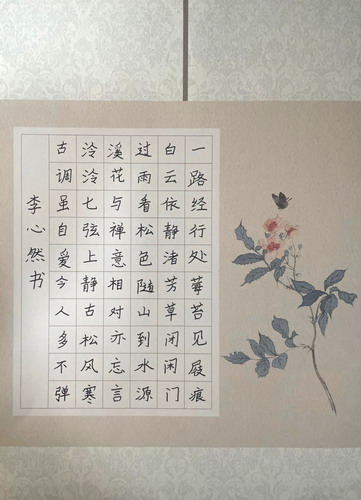 一路经行处莓苔见屐痕
白云依静渚芳草闭闲门
过雨看松色随山到水源
溪花与禅意相对亦忘言
泠泠七弦上静古松风寒
古调虽自爱今人多不弹
李心然书